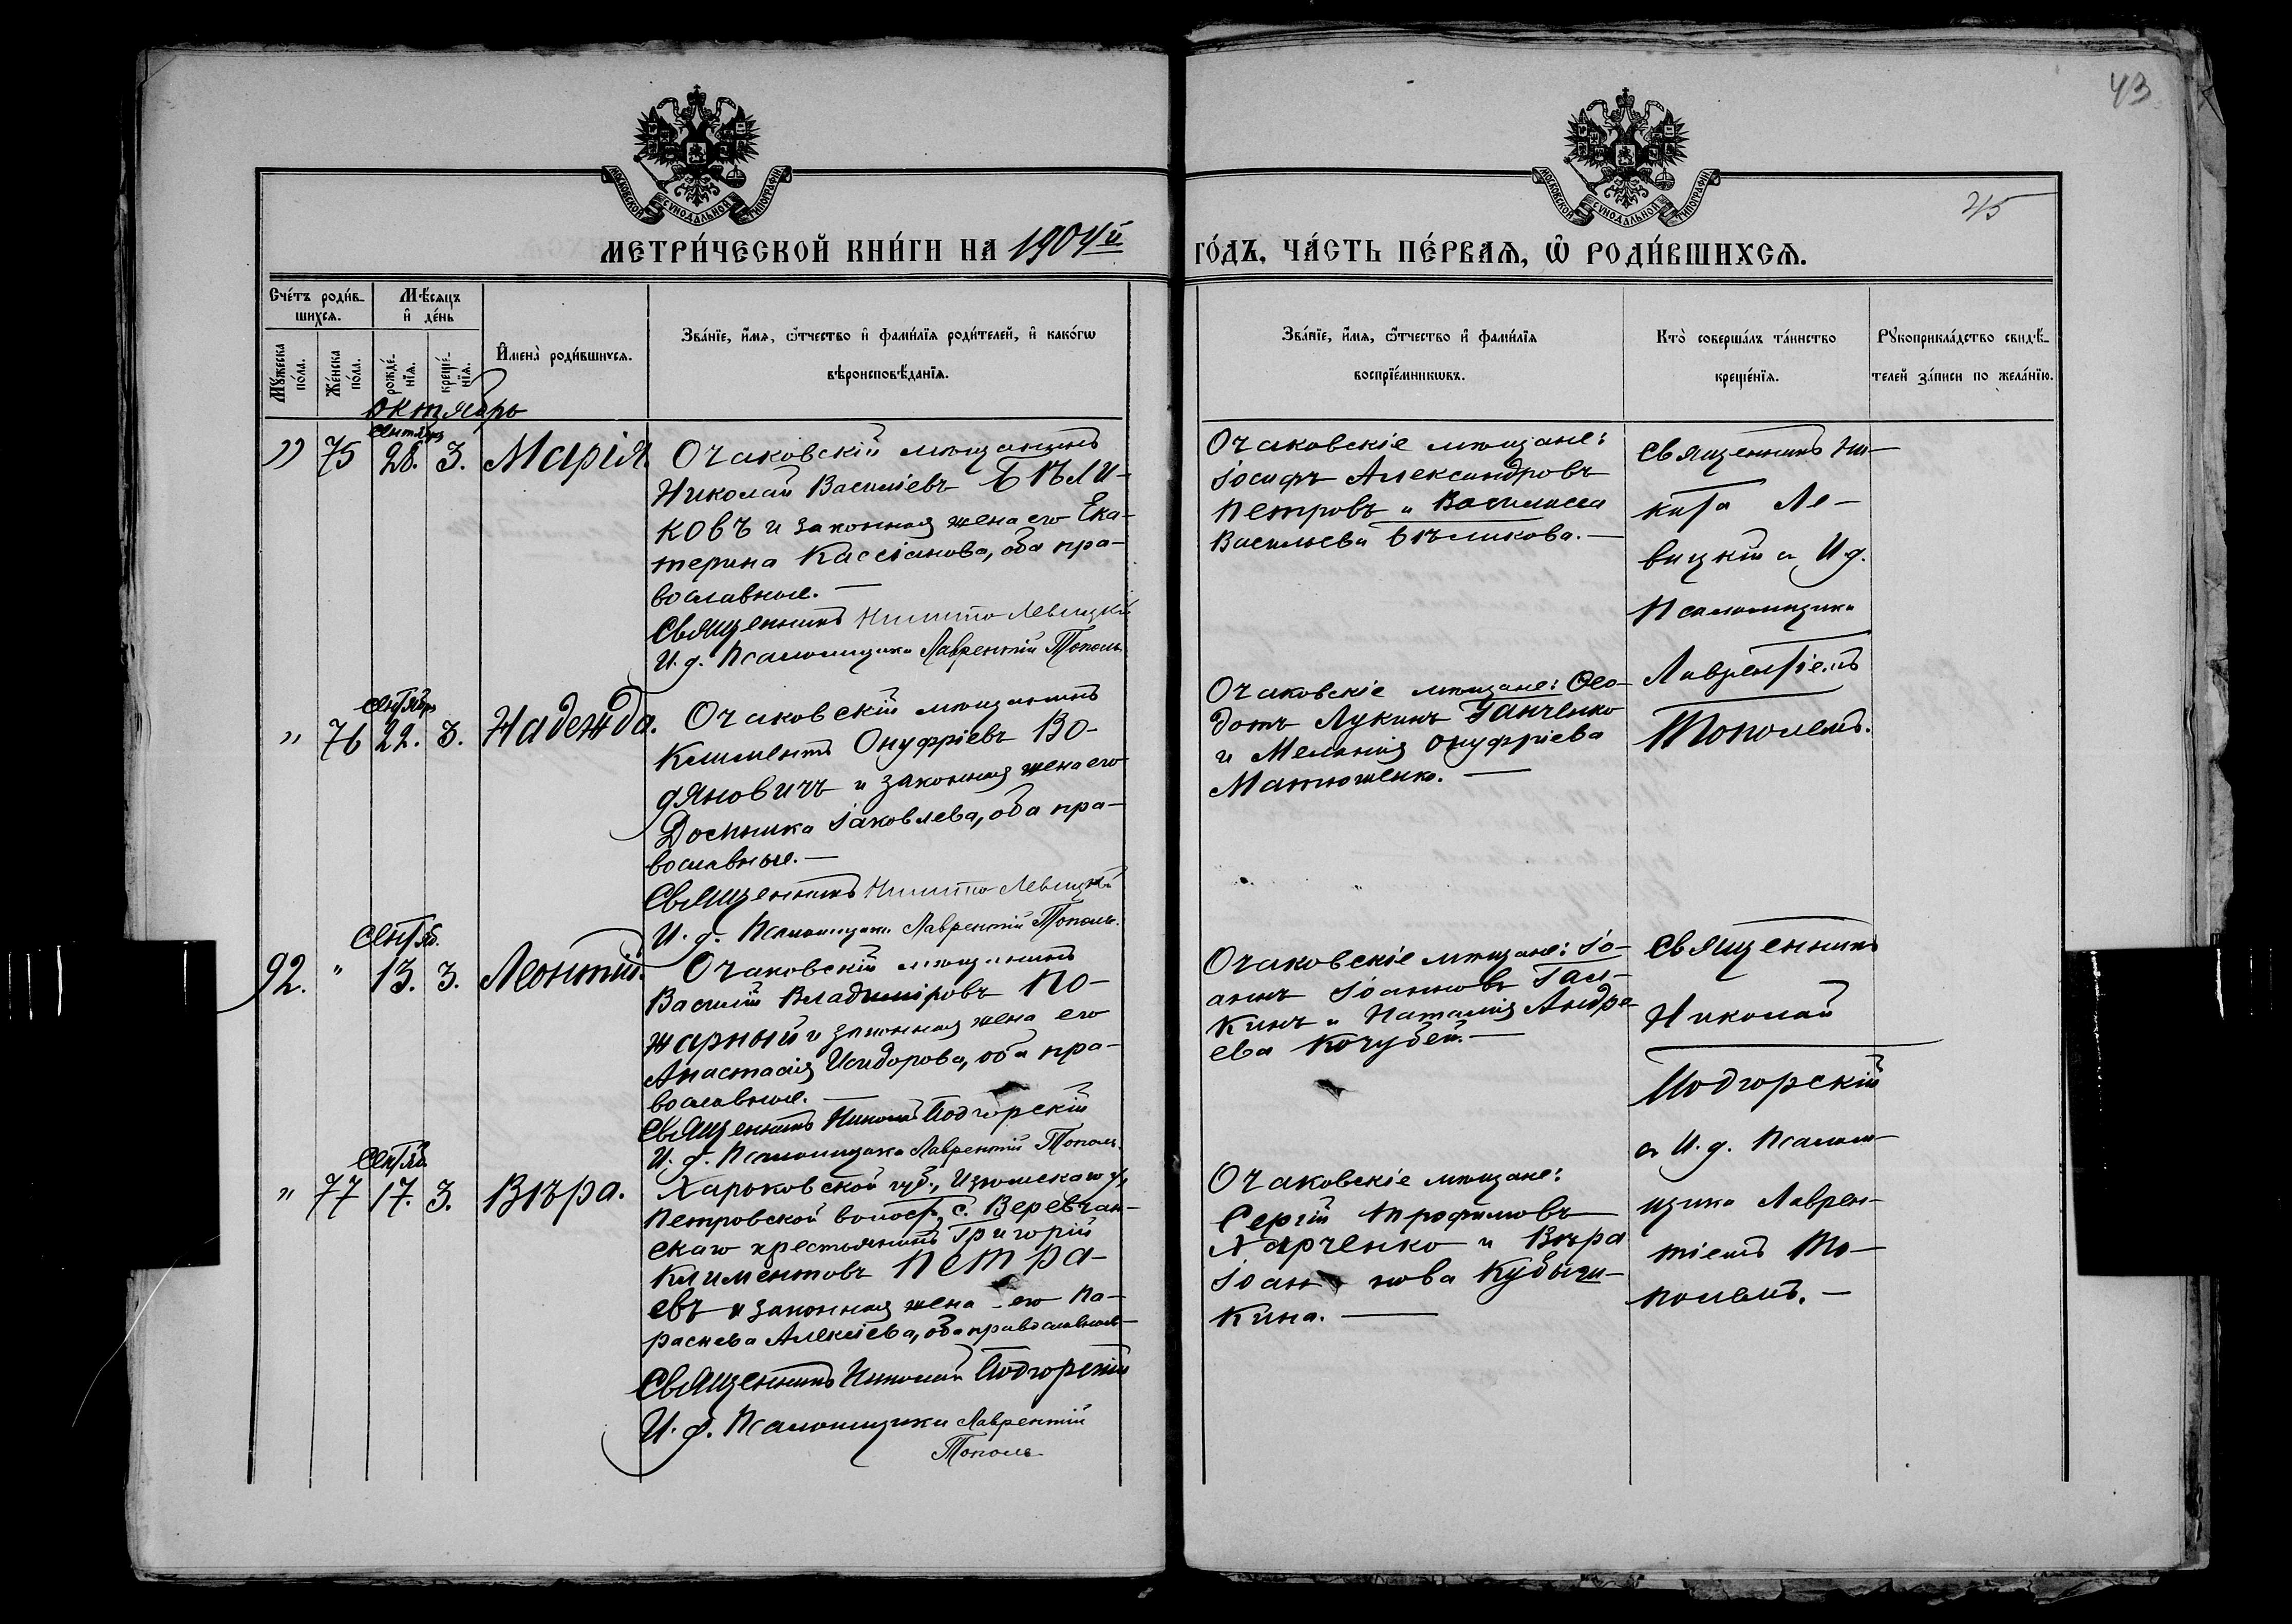 43
25
МОСКОВСКОЙ СУНОДАЛЬНОЙ ТИПОГРАФІИ
МОСКОВСКОЙ СУНОДАЛЬНОЙ ТИПОГРАФІИ
МЕТРИ́ЧЕСКОЙ КНИ́ГИ НА 1904й
ГО́ДЪ, ЧА́СТЬ ПЕ́РВАЯ, Ѡ РОДИ́ВШИХСЯ.
Сче́тъ роди́в-
шихся.
Мѣ́сяцъ
и де́нь
Му́жеска
по́ла.
Же́нска
по́ла.
рожде́-
нїя.
креще́-
нїя.
Имена̀ роди́вшихся.
Зва́нїе, и́мя, ѻ҆́тчество и фами́лїя роди́телей, и како́гѡ
вѣроисповѣ́данїя.
Зва́нїе, и́мя, ѻ҆́тчество и фами́лїя
воспрїе́мникѡвъ.
Кто̀ соверша́лъ та́инство
креще́нїя.
Рукоприкла́дство свидѣ́-
телей за́писи по жела́нїю.
октябрь
сентября
" 75 28. 3. Марія.
Очаковскій мѣщанинъ
Николай Василіевъ Бѣли-
ковъ и законная жена его Ека-
терина Кассіанова, оба пра-
вославные. —
Священникъ Никита Левицкій
И. д. Псаломщика Лаврентій Тополь
Очаковскіе мѣщане:
Іосифъ Александровъ
Петровъ и Василисса
Васильева Бѣликова. —
Священникъ Ни-
кита Ле-
вицкій съ И. д.
Псаломщика
Лаврентіемъ
Тополемъ.
сентября
" 76 22. 3. Надежда.
Очаковскій мѣщанинъ
Климентъ Онуфріевъ Во-
дяновичъ и законная жена его
Домника Іаковлева, оба пра-
вославные. —
Священникъ Никита Левицкій
И. д. Псаломщика Лаврентій Тополь.
Очаковскіе мѣщане: Ѳео-
дотъ Лукинъ Ганченко
и Меланія Онуфріева
Матюшенко. —
сентяб.
92. " 13. 3. Леонтій.
Очаковскій мѣщанинъ
Василій Владиміровъ По-
жарный и законная жена его
Анастасія Исидорова, оба пра-
вославные. —
Священникъ Николай Подгорскій
И. д. Псаломщика Лаврентій Тополь.
Очаковскіе мѣщане: Іо-
аннъ Іоанновъ Гал-
кинъ и Наталія Андре-
ева Кочубей. —
Священникъ
Николай
Подгорскій
съ И. д. Псалом-
щика Лаврен-
тіемъ То-
полемъ. —
сентяб.
" 77 17. 3. Вѣра.
Харьковской губ., Изюмскаго у.,
Петровской волости, с. Веревчан-
скаго крестьянинъ Григорій
Климентовъ Петра-
евъ и законная жена его Па-
раскева Алексіева, оба православные —
Священникъ Николай Подгорскій
И. д. Псаломщика Лаврентій
Тополь
Очаковскіе мѣщане:
Сергій Трофимовъ
Харченко и Вѣра
Іоан нова Кубыш-
кина. —